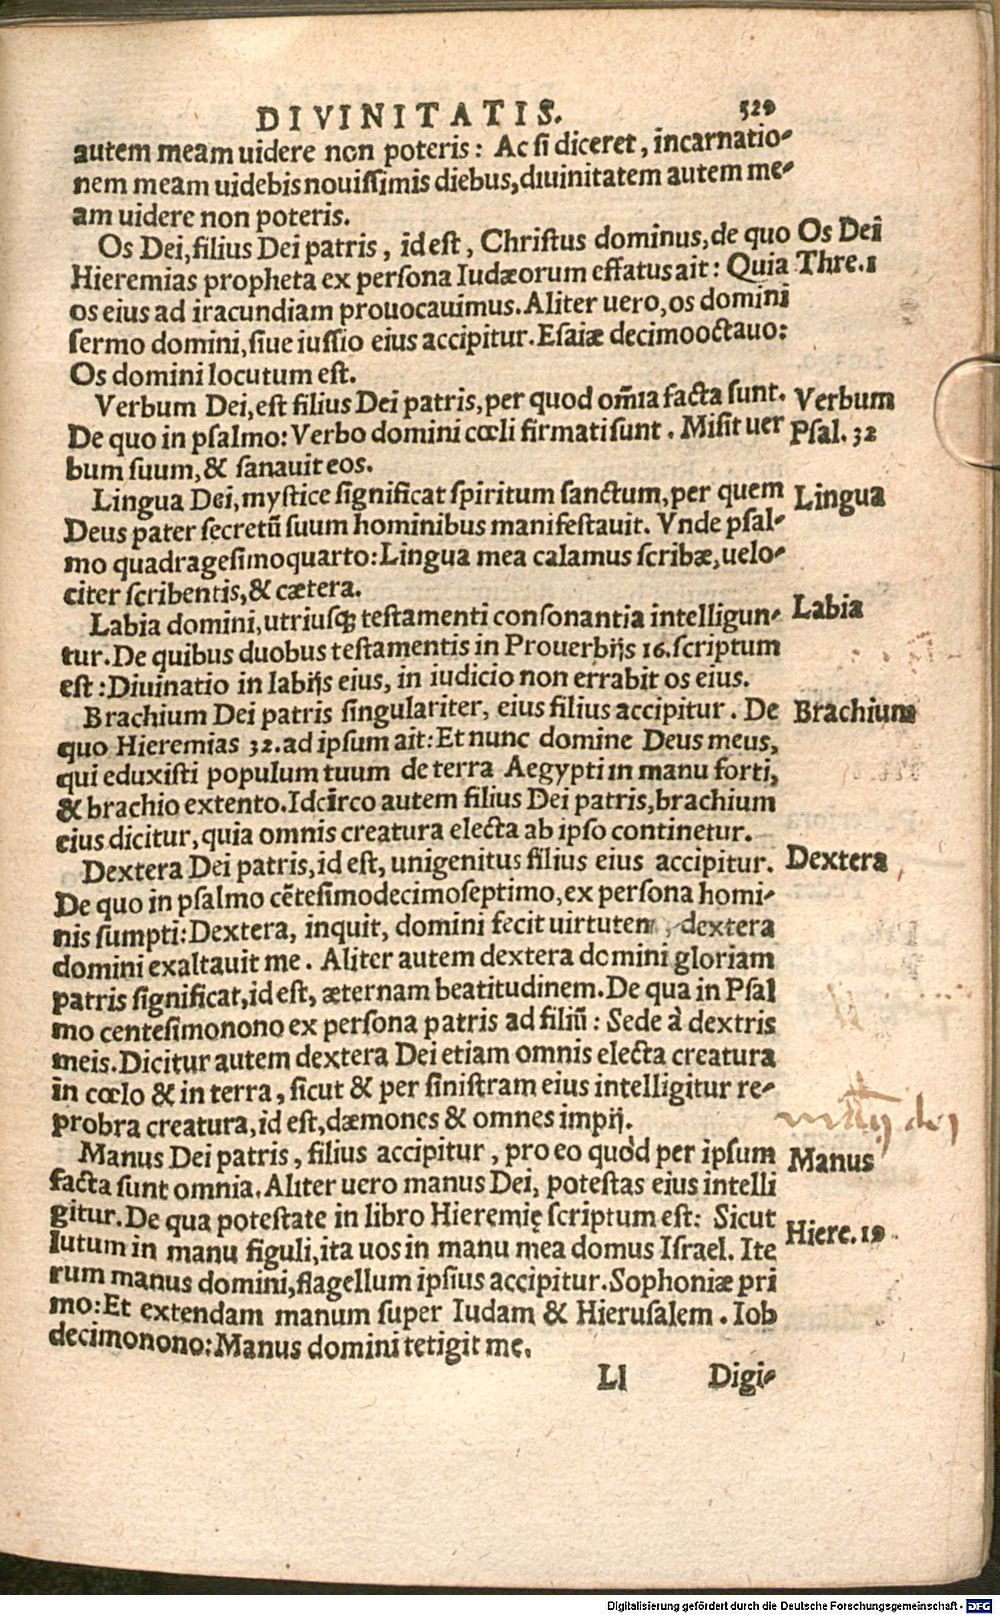 DIVINITATIS. 529
autem meam uidere non poteris: Ac si diceret, incarnatio-
nem meam uidebis nouissimis diebus, diuinitatem autem me-
am uidere non poteris.
Os Dei, filius Dei patris, id est, Christus dominus, de quo Os Dei
Hieremias propheta ex persona Iudæorum effatus ait: Quia Thre.1
os eius ad iracundiam prouocauimus. Aliter uero, os domini
sermo domini, siue iussio eius accipitur. Esaiæ decimooctauo:
Os domini locutum est.
Verbum Dei, est filius Dei patris, per quod om̃ia facta sunt. Verbum
De quo in psalmo: Verbo domini cœli firmati sunt. Misit uer Psal. 32
bum suum, & sanauit eos.
Lingua Dei, mystice significat spiritum sanctum, per quem Lingua
Deus pater secretũ suum hominibus manifestauit. Vnde psal-
mo quadragesimoquarto: Lingua mea calamus scribæ, uelo-
citer scribentis, & cætera.
Labia domini, utriusq; testamenti consonantia intelligun- Labia
tur. De quibus duobus testamentis in Prouerbijs 16. scriptum
est: Diuinatio in labijs eius, in iudicio non errabit os eius.
Brachium Dei patris singulariter, eius filius accipitur. De Brachium
quo Hieremias 32. ad ipsum ait: Et nunc domine Deus meus,
qui eduxisti populum tuum de terra Aegypti in manu forti,
& brachio extento. Idcirco autem filius Dei patris, brachium
eius dicitur, quia omnis creatura electa ab ipso continetur.
Dextera Dei patris, id est, unigenitus filius eius accipitur. Dextera
De quo in psalmo cẽtesimodecimoseptimo, ex persona homi-
nis sumpti: Dextera, inquit, domini fecit uirtutem, dextera
domini exaltauit me. Aliter autem dextera domini gloriam
patris significat, id est, æternam beatitudinem. De qua in Psal
mo centesimonono ex persona patris ad filiũ: Sede à dextris
meis. Dicitur autem dextera Dei etiam omnis electa creatura
in cœlo & in terra, sicut & per sinistram eius intelligitur re-
probra creatura, id est, dæmones & omnes impij.
Manus Dei patris, filius accipitur, pro eo quòd per ipsum Manus
facta sunt omnia. Aliter uero manus Dei, potestas eius intelli
gitur. De qua potestate in libro Hieremię scriptum est: Sicut Hiere. 19
lutum in manu figuli, ita uos in manu mea domus Israel. Ite
rum manus domini, flagellum ipsius accipitur. Sophoniæ pri
mo: Et extendam manum super Iudam & Hierusalem. Iob
decimonono: Manus domini tetigit me.
Ll Digi-
Digitalisierung gefördert durch die Deutsche Forschungsgemeinschaft - DFG